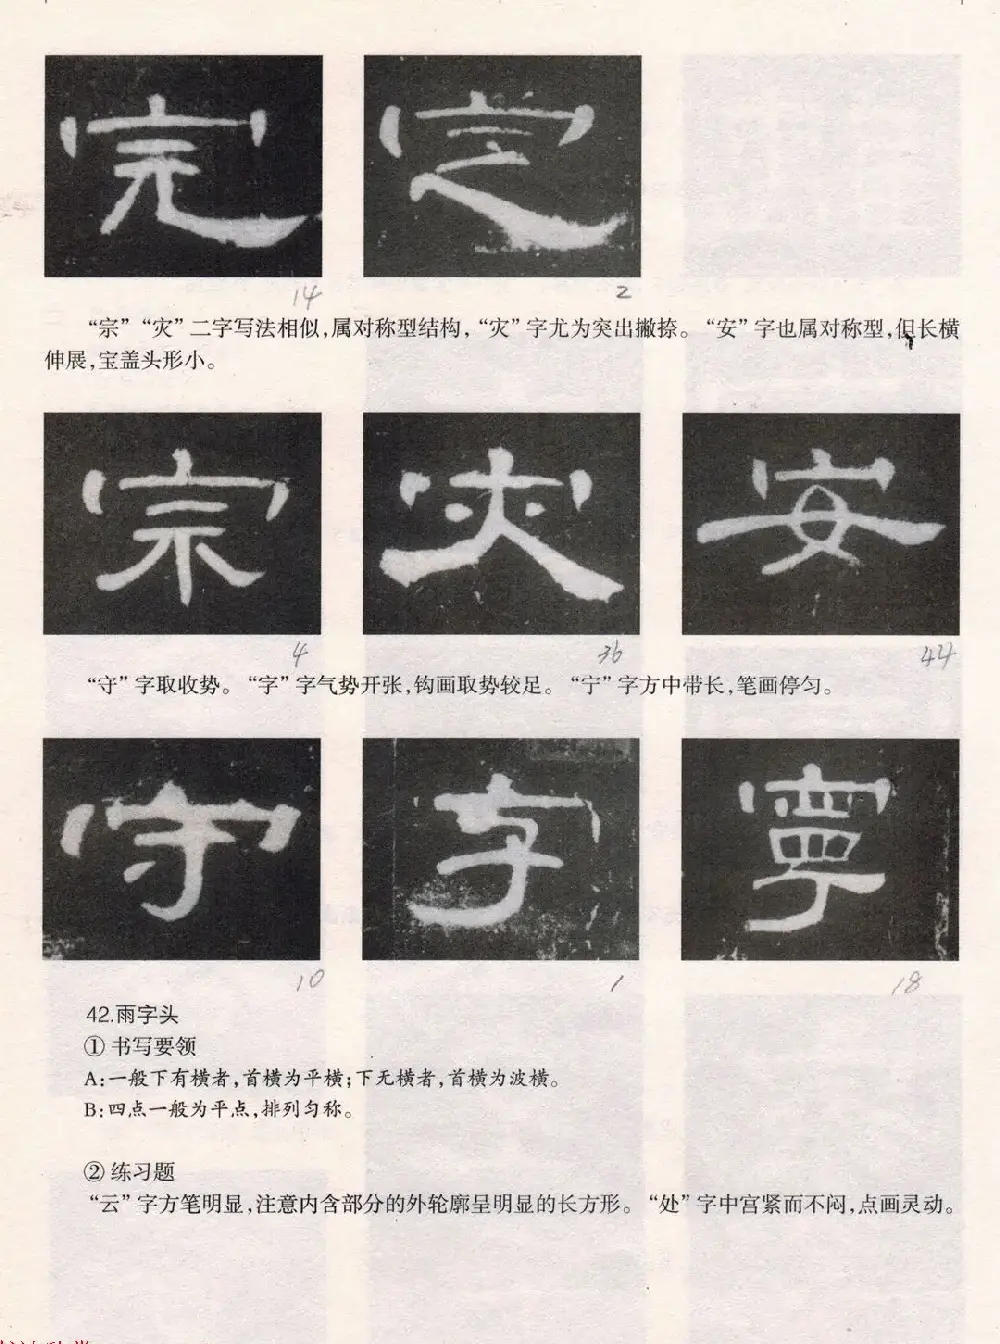 完 定
14 2
“宗”“灾”二字写法相似,属对称型结构,“灾”字尤为突出撇捺。“安”字也属对称型,但长横
伸展,宝盖头形小。
宗 灾 安
4 36 44
“守”字取收势。“字”字气势开张,钩画取势较足。“宁”字方中带长,笔画停匀。
守 字 寧
10 1 18
42.雨字头
① 书写要领
A:一般下有横者,首横为平横;下无横者,首横为波横。
B:四点一般为平点,排列匀称。
② 练习题
“云”字方笔明显,注意内含部分的外轮廓呈明显的长方形。“处”字中宫紧而不闷,点画灵动。